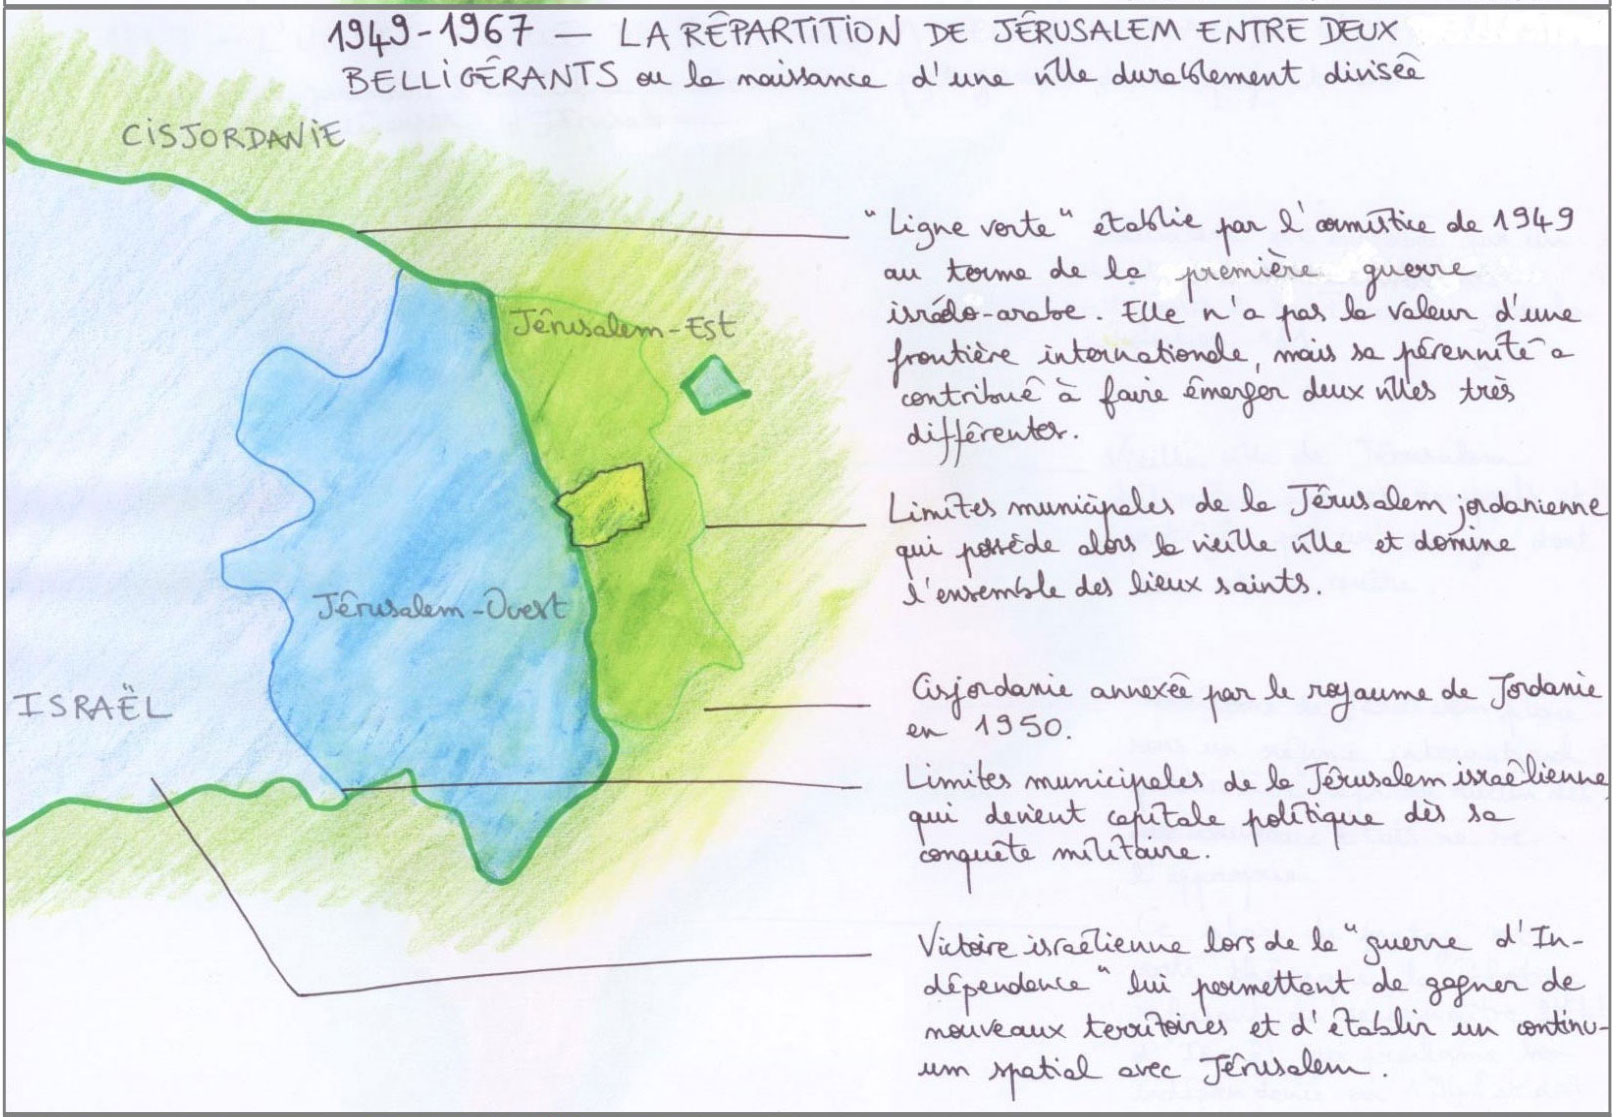 1949-1967 — LA RÉPARTITION DE JÉRUSALEM ENTRE DEUX
BELLIGÉRANTS ou la naissance d'une ville durablement divisée
CISJORDANIE
"Ligne verte" établie par l'armistice de 1949
au terme de la première guerre
israélo-arabe. Elle n'a pas la valeur d'une
frontière internationale, mais sa pérennité a
contribué à faire émerger deux villes très
différentes.
Jérusalem-Est
Limites municipales de la Jérusalem jordanienne
qui possède alors la vieille ville et domine
l'ensemble des lieux saints.
Jérusalem-Ouest
ISRAËL
Cisjordanie annexée par le royaume de Jordanie
en 1950.
Limites municipales de la Jérusalem israélienne
qui devient capitale politique dès sa
conquête militaire.
Victoire israélienne lors de la "guerre d'In-
dépendance" lui permettant de gagner de
nouveaux territoires et d'établir un continu-
um spatial avec Jérusalem.